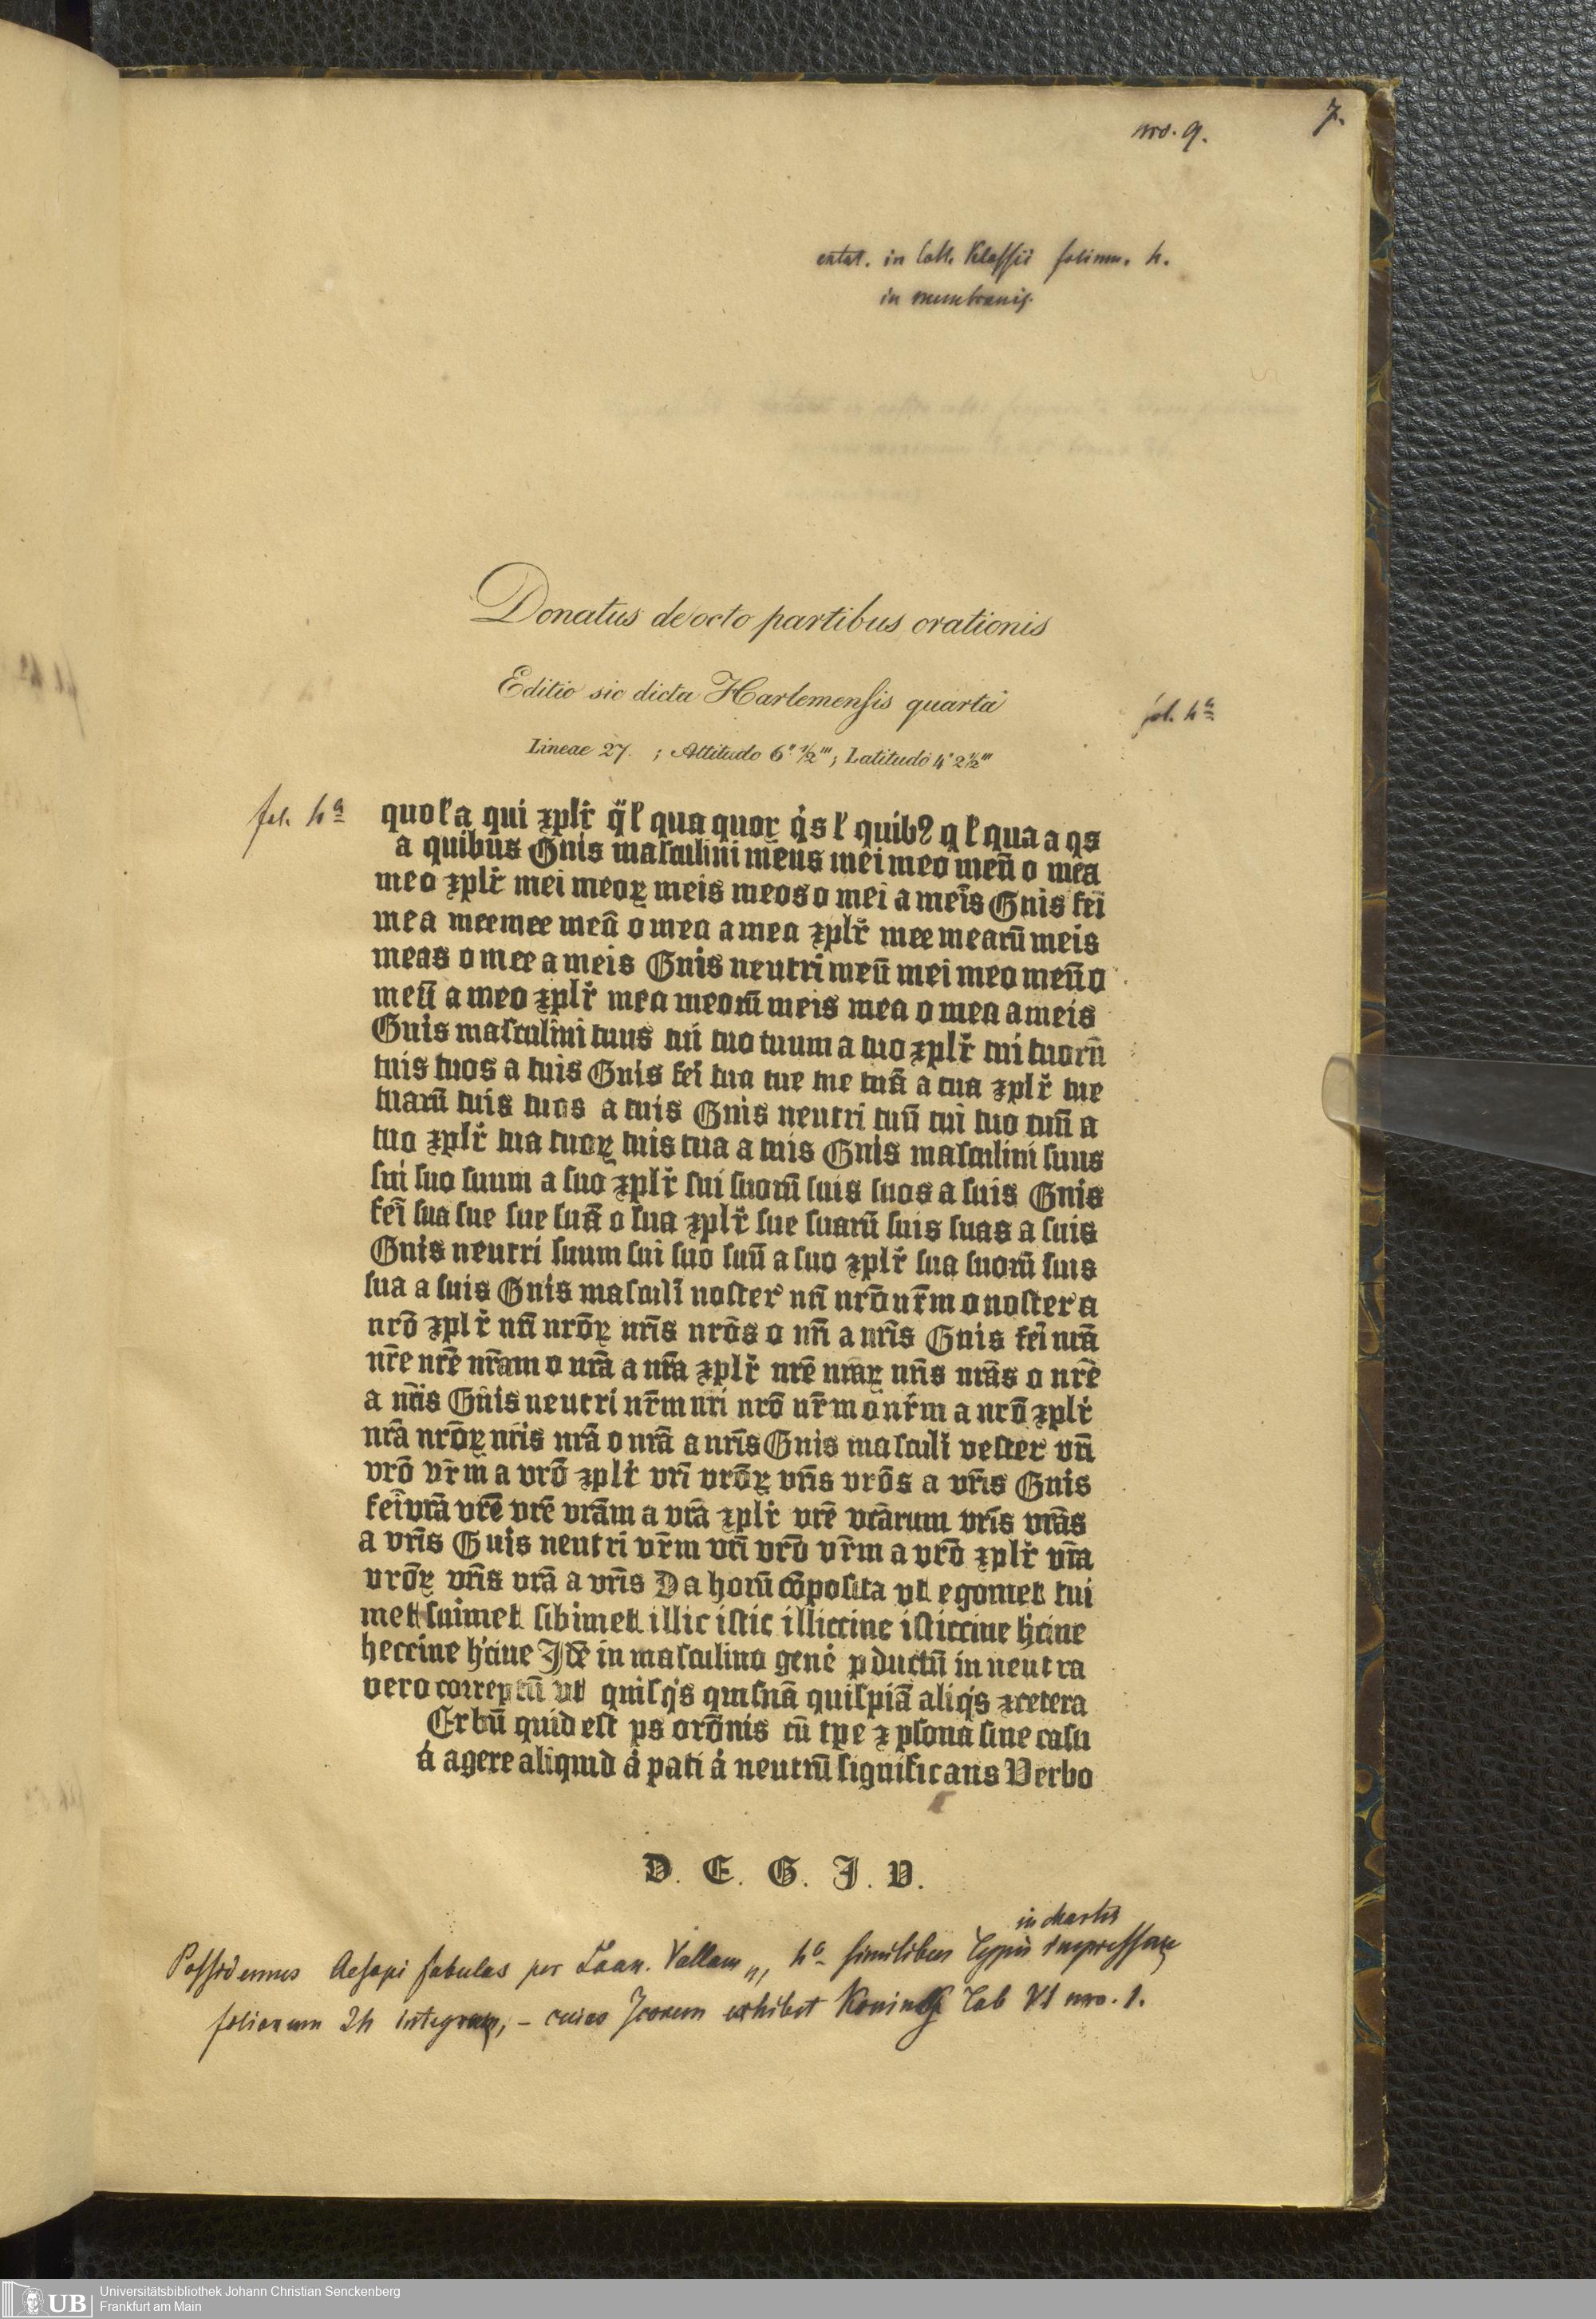 nro. 9.
7.
extat. in Coll. Klossii folium. 4.
in membranis.
Donatus de octo partibus orationis
Editio sic dicta Harlemensis quarta
fol. 4ª
Lineae 27. ; Altitudo 6" ½"' ; Latitudo 4" 2½"'
fol. 4ª
quo ł a qui ꝛplr̄ q̈ ł qua quoꝝ q̇s ł quib9 q ł qua a qs
a quibus Gnis masculini meus mei meo meū o mea
meo ꝛplr̄ mei meoꝝ meis meos o mei a meis Gnis fei
mea mee mee meā o mea a mea ꝛplr̄ mee mearū meis
meas o mee a meis Gnis neutri meū mei meo meū o
meū a meo ꝛplr̄ mea meorū meis mea o mea a meis
Gnis masculini tuus tui tuo tuum a tuo ꝛplr̄ tui tuorū
tuis tuos a tuis Gnis fei tua tue tue tuā a tua ꝛplr̄ tue
tuarū tuis tuos a tuis Gnis neutri tuū tui tuo tuū a
tuo ꝛplr̄ tua tuoꝝ tuis tua a tuis Gnis masculini suus
sui suo suum a suo ꝛplr̄ sui suorū suis suos a suis Gnis
fei sua sue sue suā o sua ꝛplr̄ sue suarū suis suas a suis
Gnis neutri suum sui suo suū a suo ꝛplr̄ sua suorū suis
sua a suis Gnis masculī noster nrī nrō nr̄m o noster a
nrō ꝛplr̄ nrī nrōꝝ nrīs nrōs o nrī a nrīs Gnis fei nrā
nr̄e nrē nr̄am o nrā a nrā ꝛplr̄ nrē nrāꝝ nrīs nrās o nrē
a nrīs Gnis neutri nr̄m nrī nrō nr̄m o nr̄m a nrō ꝛplr̄
nrā nrōꝝ nrīs nrā o nrā a nrīs Gnis masculī vester vrī
vrō vr̄m a vrō ꝛplr̄ vrī vrōꝝ vrīs vrōs a vrīs Gnis
fei vrā vrē vrē vrām a vrā ꝛplr̄ vrē vrārum vrīs vrās
a vrīs Gnis neutri vr̄m vrī vrō vr̄m a vrō ꝛplr̄ vrā
vrōꝝ vrīs vrā a vrīs Da horū cōposita vt egomet tui
met suimet sibimet illic istic illiccine isticcine hcine
heccine hcine Jdē in masculino genē pductū in neutra
vero correptū vt quisq's quisnā quispiā aliq's ꝛcetera
Erbū quid est ps orōnis cū tpe ꝛ psona sine casu
a̍ agere aliquid a̍ pati a̍ neutrū significans Verbo
D. E. G. J. V.
in chartis
Possidemus Aesopi fabulas per Laur. Vallam, 4º similibus typis impressas
foliorum 24 integrum, – cuius Iconem exhibet Koning Tab VI nro. 1.
UB
Universitätsbibliothek Johann Christian Senckenberg
Frankfurt am Main